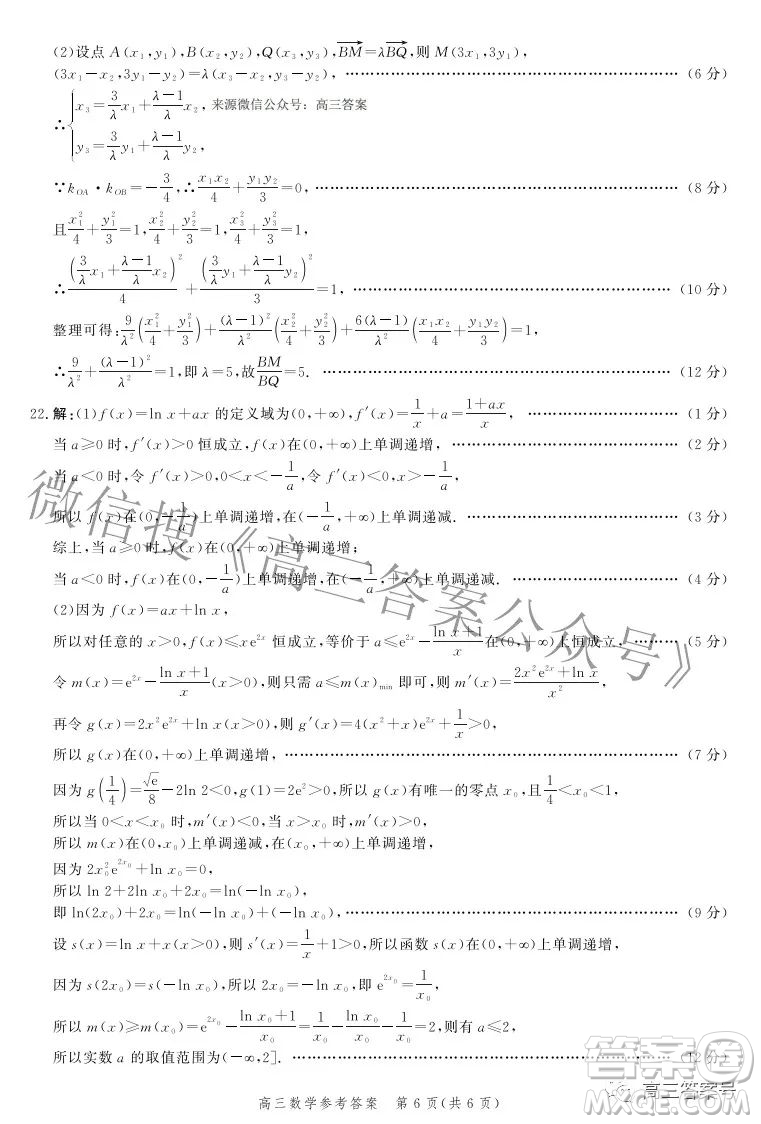 (2)设点 A(x₁,y₁),B(x₂,y₂),Q(x₃,y₃),\overrightarrow{BM}=λ\overrightarrow{BQ},则 M(3x₁,3y₁),
(3x₁-x₂,3y₁-y₂)=λ(x₃-x₂,y₃-y₂), …… (6 分)
∴{x₃=\frac{3}{λ}x₁+\frac{λ-1}{λ}x₂, 来源微信公众号:高三答案
y₃=\frac{3}{λ}y₁+\frac{λ-1}{λ}y₂,
∵k_{OA}·k_{OB}=-\frac{3}{4},∴\frac{x₁x₂}{4}+\frac{y₁y₂}{3}=0, …… (8 分)
且\frac{x₁²}{4}+\frac{y₁²}{3}=1,\frac{x₂²}{4}+\frac{y₂²}{3}=1,\frac{x₃²}{4}+\frac{y₃²}{3}=1,
∴\frac{(\frac{3}{λ}x₁+\frac{λ-1}{λ}x₂)²}{4}+\frac{(\frac{3}{λ}y₁+\frac{λ-1}{λ}y₂)²}{3}=1, …… (10 分)
整理可得:\frac{9}{λ²}(\frac{x₁²}{4}+\frac{y₁²}{3})+\frac{(λ-1)²}{λ²}(\frac{x₂²}{4}+\frac{y₂²}{3})+\frac{6(λ-1)}{λ²}(\frac{x₁x₂}{4}+\frac{y₁y₂}{3})=1,
∴\frac{9}{λ²}+\frac{(λ-1)²}{λ²}=1,即 λ=5,故\frac{BM}{BQ}=5. …… (12 分)
22.解:(1)f(x)=ln x+ax 的定义域为(0,+∞),f′(x)=\frac{1}{x}+a=\frac{1+ax}{x}, …… (1 分)
当 a≥0 时,f′(x)>0 恒成立,f(x)在(0,+∞)上单调递增, …… (2 分)
当 a<0 时,令 f′(x)>0,0<x<-\frac{1}{a},令 f′(x)<0,x>-\frac{1}{a},
所以 f(x)在(0,-\frac{1}{a})上单调递增,在(-\frac{1}{a},+∞)上单调递减. …… (3 分)
综上,当 a≥0 时,f(x)在(0,+∞)上单调递增;
当 a<0 时,f(x)在(0,-\frac{1}{a})上单调递增,在(-\frac{1}{a},+∞)上单调递减. …… (4 分)
(2)因为 f(x)=ax+ln x,
所以对任意的 x>0,f(x)≤xe^{2x} 恒成立,等价于 a≤e^{2x}-\frac{ln x+1}{x}在(0,+∞)上恒成立. …… (5 分)
令 m(x)=e^{2x}-\frac{ln x+1}{x}(x>0),则只需 a≤m(x)_{min} 即可,则 m′(x)=\frac{2x²e^{2x}+ln x}{x²},
再令 g(x)=2x²e^{2x}+ln x(x>0),则 g′(x)=4(x²+x)e^{2x}+\frac{1}{x}>0,
所以 g(x)在(0,+∞)上单调递增, …… (7 分)
因为 g(\frac{1}{4})=\frac{\sqrt{e}}{8}-2ln 2<0,g(1)=2e²>0,所以 g(x)有唯一的零点 x₀,且\frac{1}{4}<x₀<1,
所以当 0<x<x₀ 时,m′(x)<0,当 x>x₀ 时,m′(x)>0,
所以 m(x)在(0,x₀)上单调递减,在(x₀,+∞)上单调递增,
因为 2x₀²e^{2x₀}+ln x₀=0,
所以 ln 2+2ln x₀+2x₀=ln(-ln x₀),
即 ln(2x₀)+2x₀=ln(-ln x₀)+(-ln x₀), …… (9 分)
设 s(x)=ln x+x(x>0),则 s′(x)=\frac{1}{x}+1>0,所以函数 s(x)在(0,+∞)上单调递增,
因为 s(2x₀)=s(-ln x₀),所以 2x₀=-ln x₀,即 e^{2x₀}=\frac{1}{x₀},
所以 m(x)≥m(x₀)=e^{2x₀}-\frac{ln x₀+1}{x₀}=\frac{1}{x₀}-\frac{ln x₀}{x₀}-\frac{1}{x₀}=2,则有 a≤2,
所以实数 a 的取值范围为(-∞,2]. …… (12 分)
高三数学参考答案 第 6 页(共 6 页)
微信搜《高三答案公众号》
答案圈
MXQE.COM
高三答案号